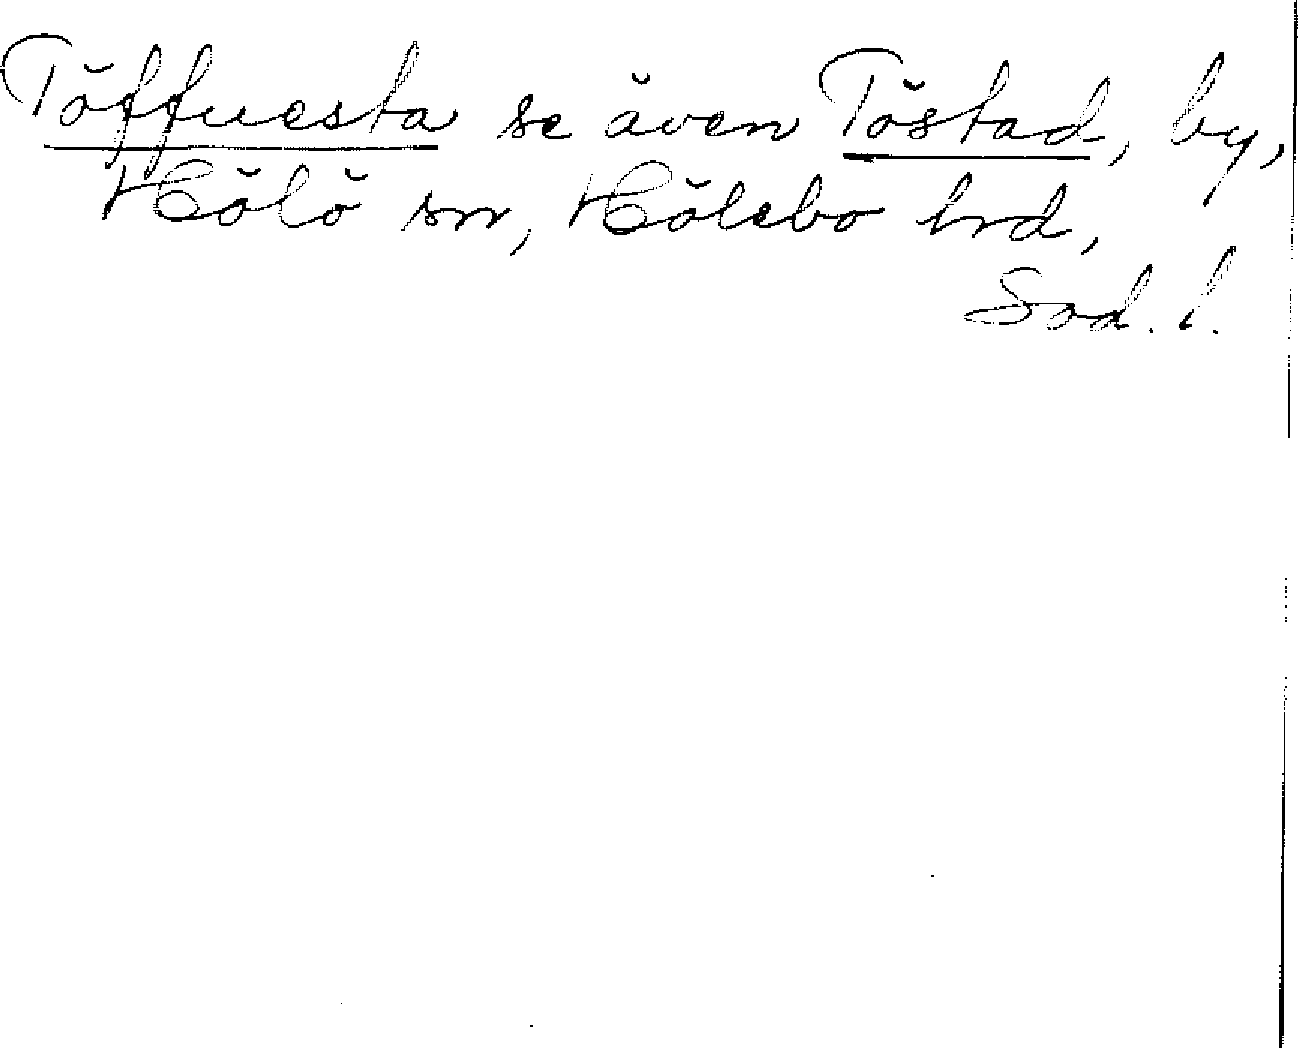 Töffuesta se även Töstad, by,
Hölö sn, Hölebo hrd,
Söd. l.